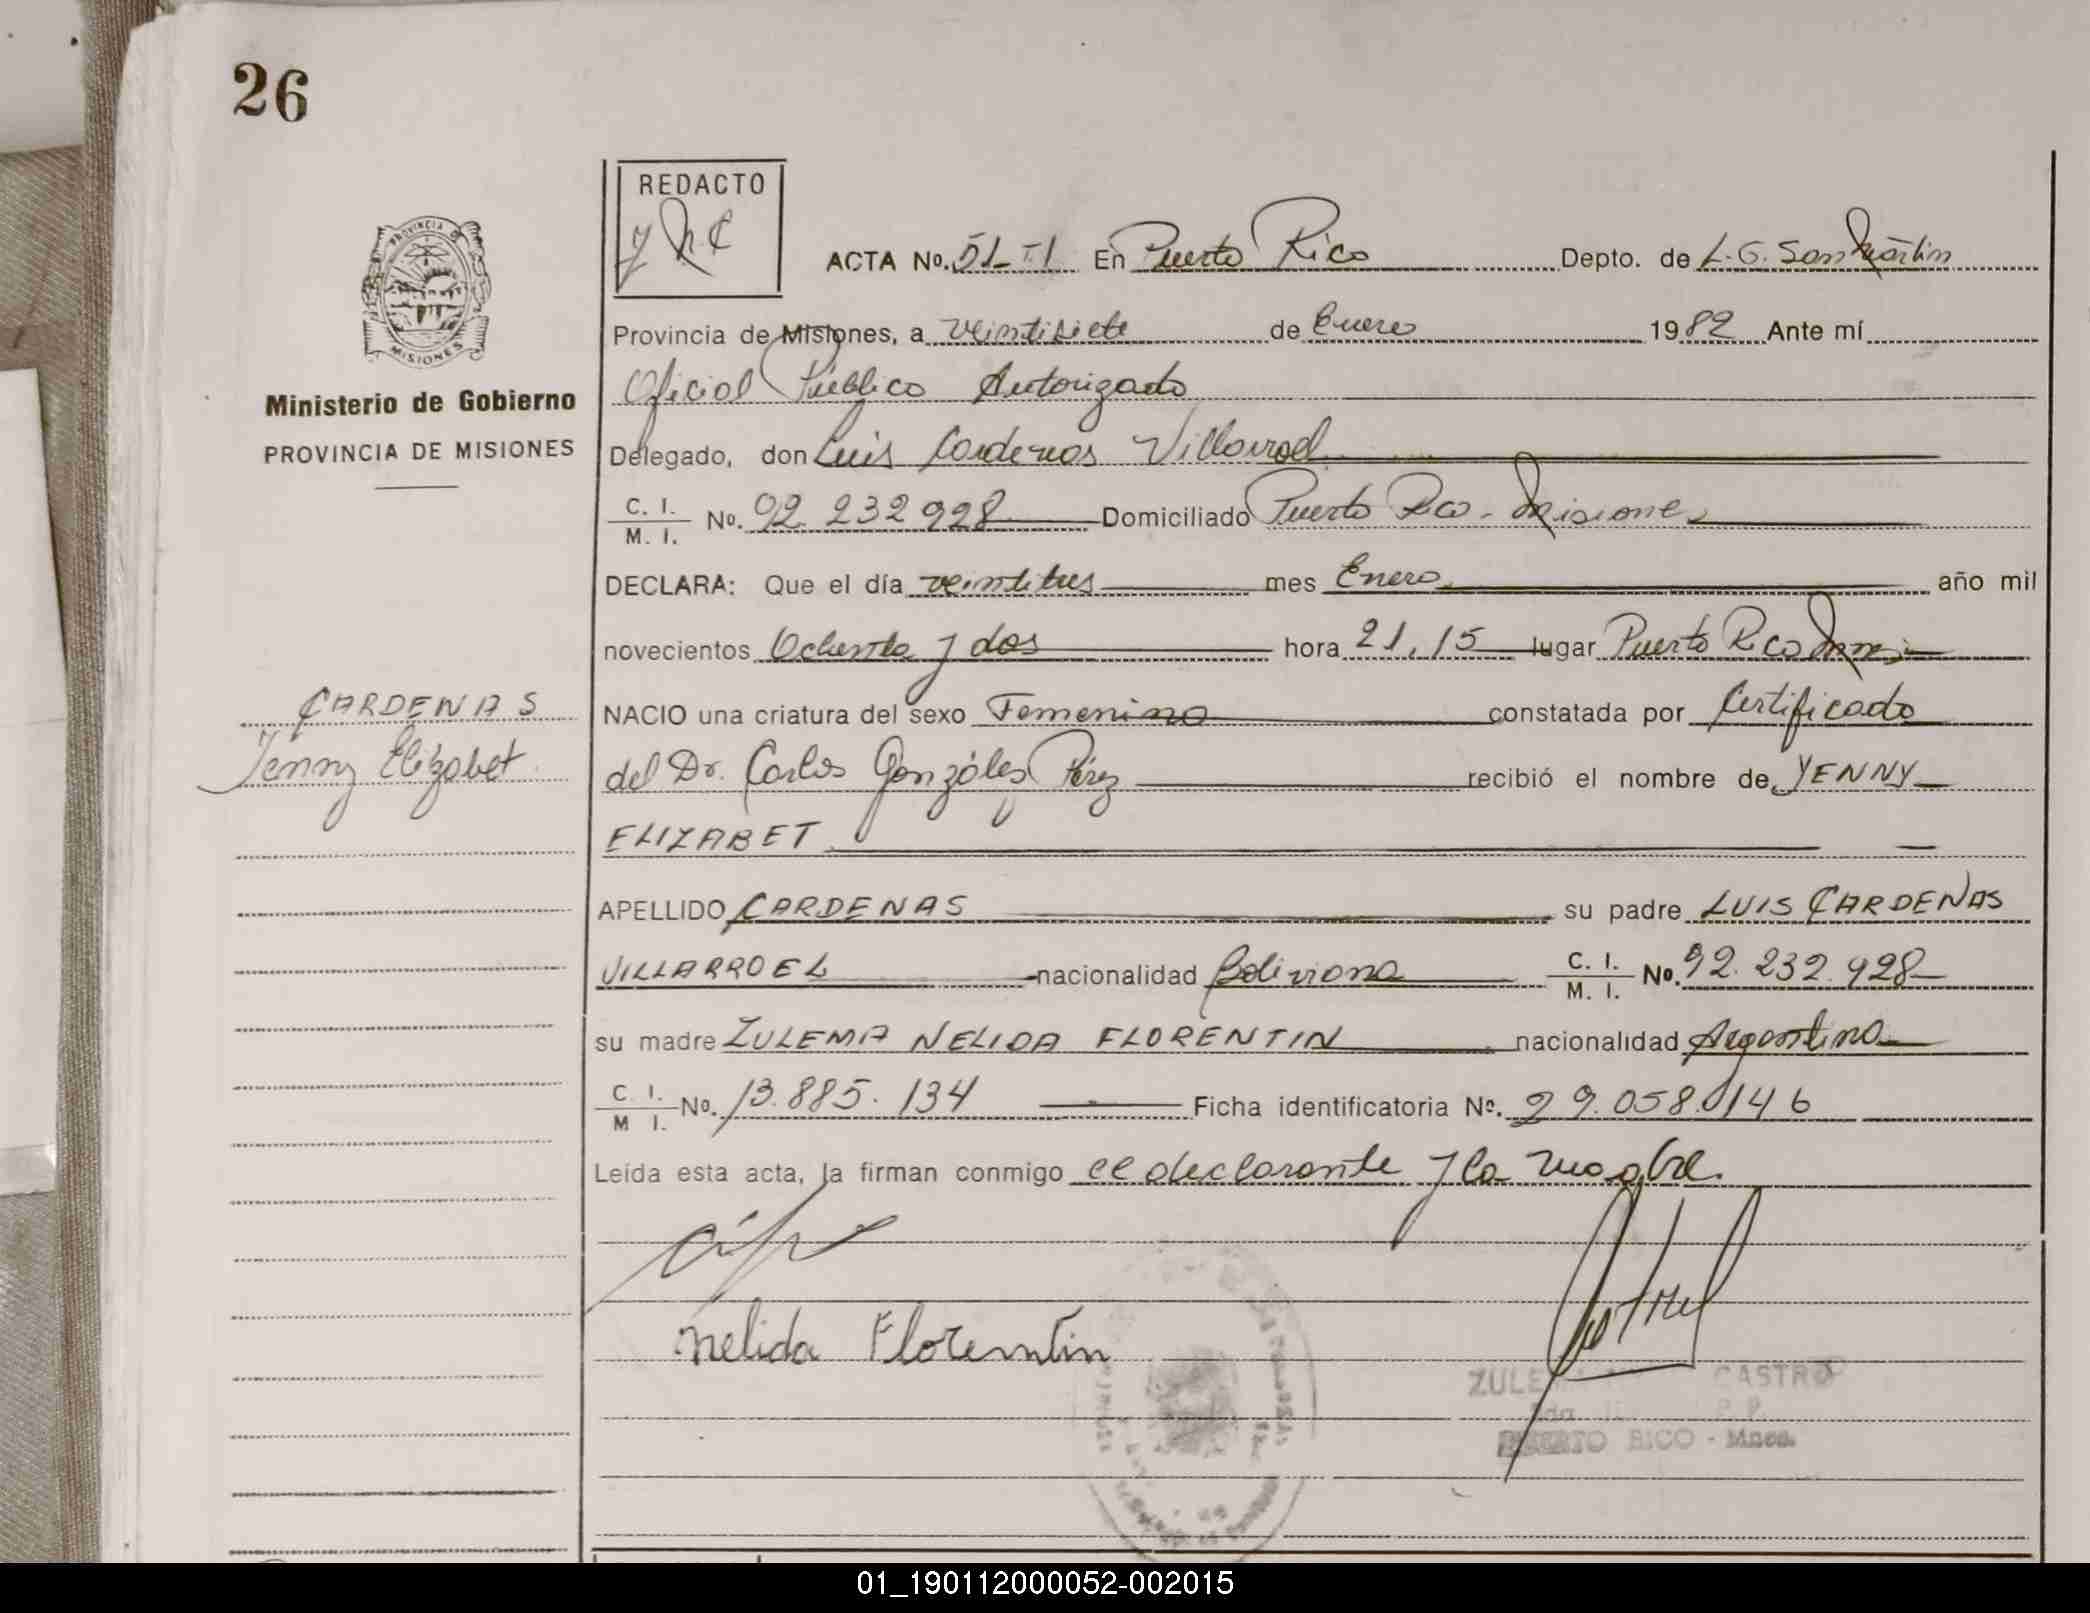 26
REDACTO
ACTA No. 51-T1 En Puerto Rico Depto. de L.G. San Martin
Provincia de Misiones, a veintisiete de Enero 1982 Ante mí
Oficial Público Autorizado
Ministerio de Gobierno
PROVINCIA DE MISIONES
Delegado, don Luis Cardenas Villarroel
C. I. M. I. No. 92.232.928 Domiciliado Puerto Rico - Misiones
DECLARA: Que el día veintitres mes Enero año mil
novecientos Ochenta y dos hora 21,15 lugar Puerto Rico Mnes
CARDENAS
Yenny Elizabet
NACIO una criatura del sexo Femenino constatada por Certificado
del Dr. Carlos Gonzáles Pérez recibió el nombre de YENNY
ELIZABET
APELLIDO CARDENAS su padre LUIS CARDENAS
VILLARROEL nacionalidad Boliviana C. I. M. I. No. 92.232.928
su madre ZULEMA NELIDA FLORENTIN nacionalidad Argentina
C. I. M I. No. 13.885.134 Ficha identificatoria No. 29.058.146
Leída esta acta, la firman conmigo el declarante y la madre.
Nelida Florentin
CASTRO
PUERTO RICO - Mnes.
01_190112000052-002015